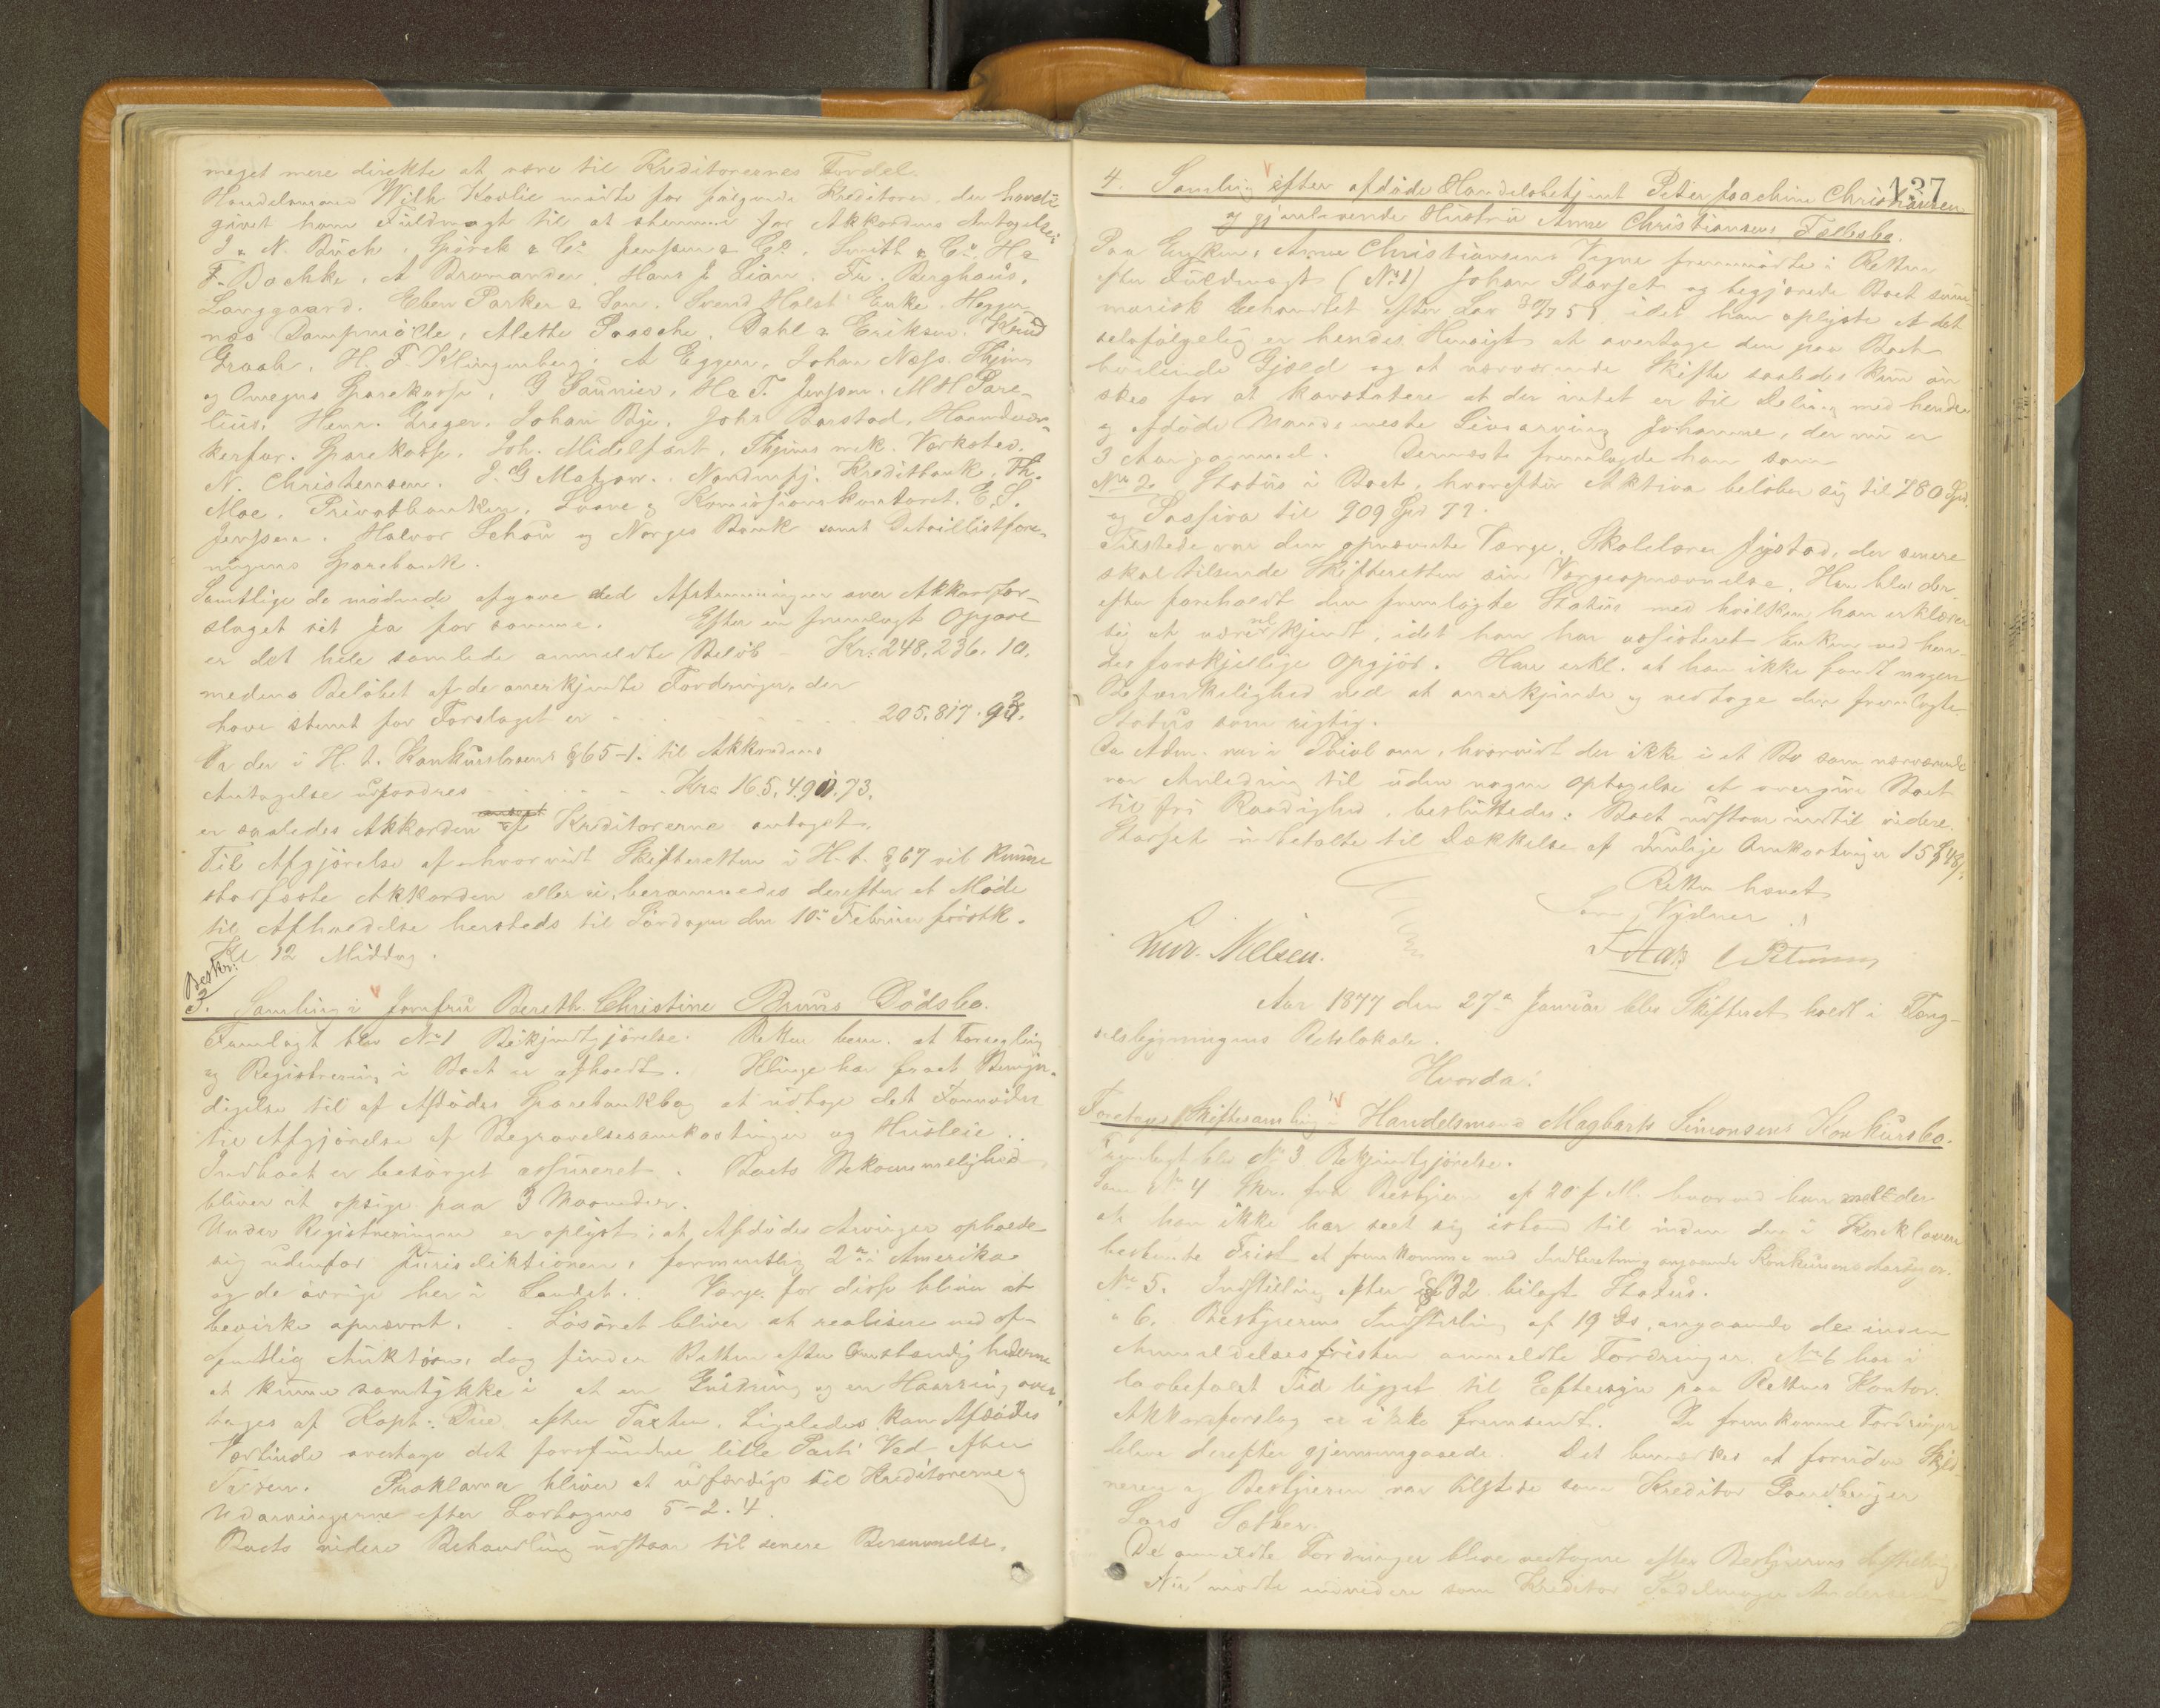 meget mere direkte at være til Kreditorernes Fordel.
Handelsmand Wilh Kavlie mödte for fölgende Kreditorer, der havde
givet ham Fuldmagt til at stemme for Akkordens Antagelse:
J & N. Buch, Hörck & Co Jenssen & Co, Smith & Co, H &
F. Bachke, A Bromander, Hans J Lian, Fr. Berghaus,
Langgaard. Eben Parker & Son. Svend Holst Enke. Heggsn
næs Dampmölle, Mette Paasche, Dahl & Eriksen. Knud
Graah, H. F. Klingenberg, A Eggen, Johan Næss. Thjems
og Omegns Sparekasse, G Saunier, H & F. Jenssen. M H Pare-
lius. Henr. Dreger. Johan Bye, Johs Barstad, Haandvær-
kerfor. Sparekasse, Joh. Midelfart, Thjems mek. Værksted.
N. Christensen. J. G Matzow. Nordenfj. Kreditbank, Th.
Moe, Privatbanken, Laane og Komissionskontoret. E. S.
Jenssen. Halvor Schou og Norges Bank samt Detaillistfore-
ningens Sparebank.
Samtlige de mödende afgave ved Afstemningen over Akkordfor-
slaget sit Ja for samme. Efter en fremlagt Opgave
er det hele samlede anmeldte Belöb - Kr: 248,236. 10.
medens Belöbet af de anerkjendte Fordringer, der
have stemt for Forslaget er 205.817.93.
Da der i H. t. Konkurslovens § 65-1. til Akkordens
Antagelse udfordres Kr: 165,490.73.
er saaledes Akkorden af Kreditorerne antaget.
Til Afgjörelse af hvorvidt Skifteretten i H. t. § 67 vil kunne
stadfæste Akkorden eller ei, berammedes derefter et Möde
til Afholdelse hersteds til Lördagen den 10de Februar förstk.
Kl 12 Middag.
Beskr:
3. Samling i Jomfru Bereth Christine Bruns Dödsbo.
Fremlagt blev No 1 Bekjendtgjörelse. Retten bem. at Forsegling
og Registrering i Boet er afholdt. Klinge har faaet Bemyn-
digelse til af Afdödes Sparebankbog at udtage det Fornödne
til Afgjörelse af Begravelsesomkostninger og Husleie.
Indboet er besörget assureret. Boets Bekvemmelighed
bliver at opsige paa 3 Maaneder.
Under Registreringen er oplyst, at Afdödes Arvinger opholde
sig udenfor Jurisdiktionen, formentlig 2de i Amerika
og de övrige her i Landet. Værge for disse bliver at
bevirke opnævnt. Lösöret bliver at realisere ved of-
fentlig Auktion, dog finder Retten efter Omstændighederne
at kunne samtykke i at en Guldring og en Haarring over-
tages af Kapt: Due efter Taxten. Ligeledes kan Afdödes
Værtinde overtage det forefundne lille Parti Ved efter
Taxten. Proklama bliver at udfærdige til Kreditorerne og
Udarvingerne efter Lovbogens 5-2.4.
Boets videre Behandling udstaar til senere Berammelse.
137
4. Samling efter afdöde Handelsbetjent Peter Joachim Christiansen
og gjenlevende Hustru Anne Christiansens Fællesbo.
Paa Enken, Anne Christiansens Vegne fremmödte i Retten
efter Fuldmagt (No 1) Johan Starset og begjærede Boet sum-
marisk behandlet efter Lov 30/7 51. idet han oplyste at det
selvfölgelig er hendes Hensigt at overtage den paa Boet
hvilende Gjæld og at nærværende Skifte saaledes kun ön-
skes for at konstatere at der intet er til Deling med hendes
og afdöde Mands eneste Livsarving Johanne, der nu er
3 Aar gammel. Dernæst fremlagde han som
No 2. Status i Boet, hvorefter Aktiva belöber sig til 280 Spd.
og Passiva til 909 Spd 77.
Tilstede var den opnævnte Værge, Skolelærer Jystad, der senere
skal tilsende Skifteretten sin Værgeopnævnelse. Han blev der-
efter foreholdt den fremlagte Status med hvilken han erklærer
sig at være vel kjendt, idet han har assisteret Enken ved hen-
des forskjellige Opgjör. Han erkl. at han ikke fandt nogen
Betænkelighed ved at anerkjende og vedtage den fremlagte
Status som rigtig.
Da Adm. var i Tvivl om, hvorvidt der ikke i et Bo som nærværende
var Anledning til uden nogen Optagelse at overgive Boet
til fri Raadighed, besluttedes: Boet udstaar indtil videre.
Starset indbetalte til Dækkelse af Omkostninger
Retten hævet
Som Vidner
Ludv. Nielsen.
Aar 1877 den 27de Januar blev Skifteret holdt i Fæng-
selsbygningens Retslokale.
Hvorda:
Foretoges Skiftesamling i Handelsmand Magbarts Simonsens Konkursbo.
Fremlagt blev No 3 Bekjendtgjörelse.
Som No 4 Skr. fra Bestyreren af 20 f M. hvorved han melder
at han ikke har seet sig istand til inden den i Konkloven
bestemte Frist at fremkomme med Indberetning angaaende Konkursens Aarsager.
No 5. Indstilling efter § 32 bilagt Status.
" 6. Bestyrerens Indstilling af 19 ds, angaaende de inden
Anmeldelsesfristen anmeldte Fordringer. No 6 har i
lovbefalet Tid ligget til Eftersyn paa Rettens Kontor.
Akkordforslag er ikke fremsendt. De fremkomne Fordringer
bleve derefter gjennemgaaede. Det bemærkes at foruden Skyld-
neren og Bestyreren var tilstede som Kreditor Gaardbruger
Lars Sæther.
De anmeldte Fordringer bleve vedtagne efter Bestyrerens Indstilling
Nu mödte endvidere som Kreditor Sadelmager Andersen